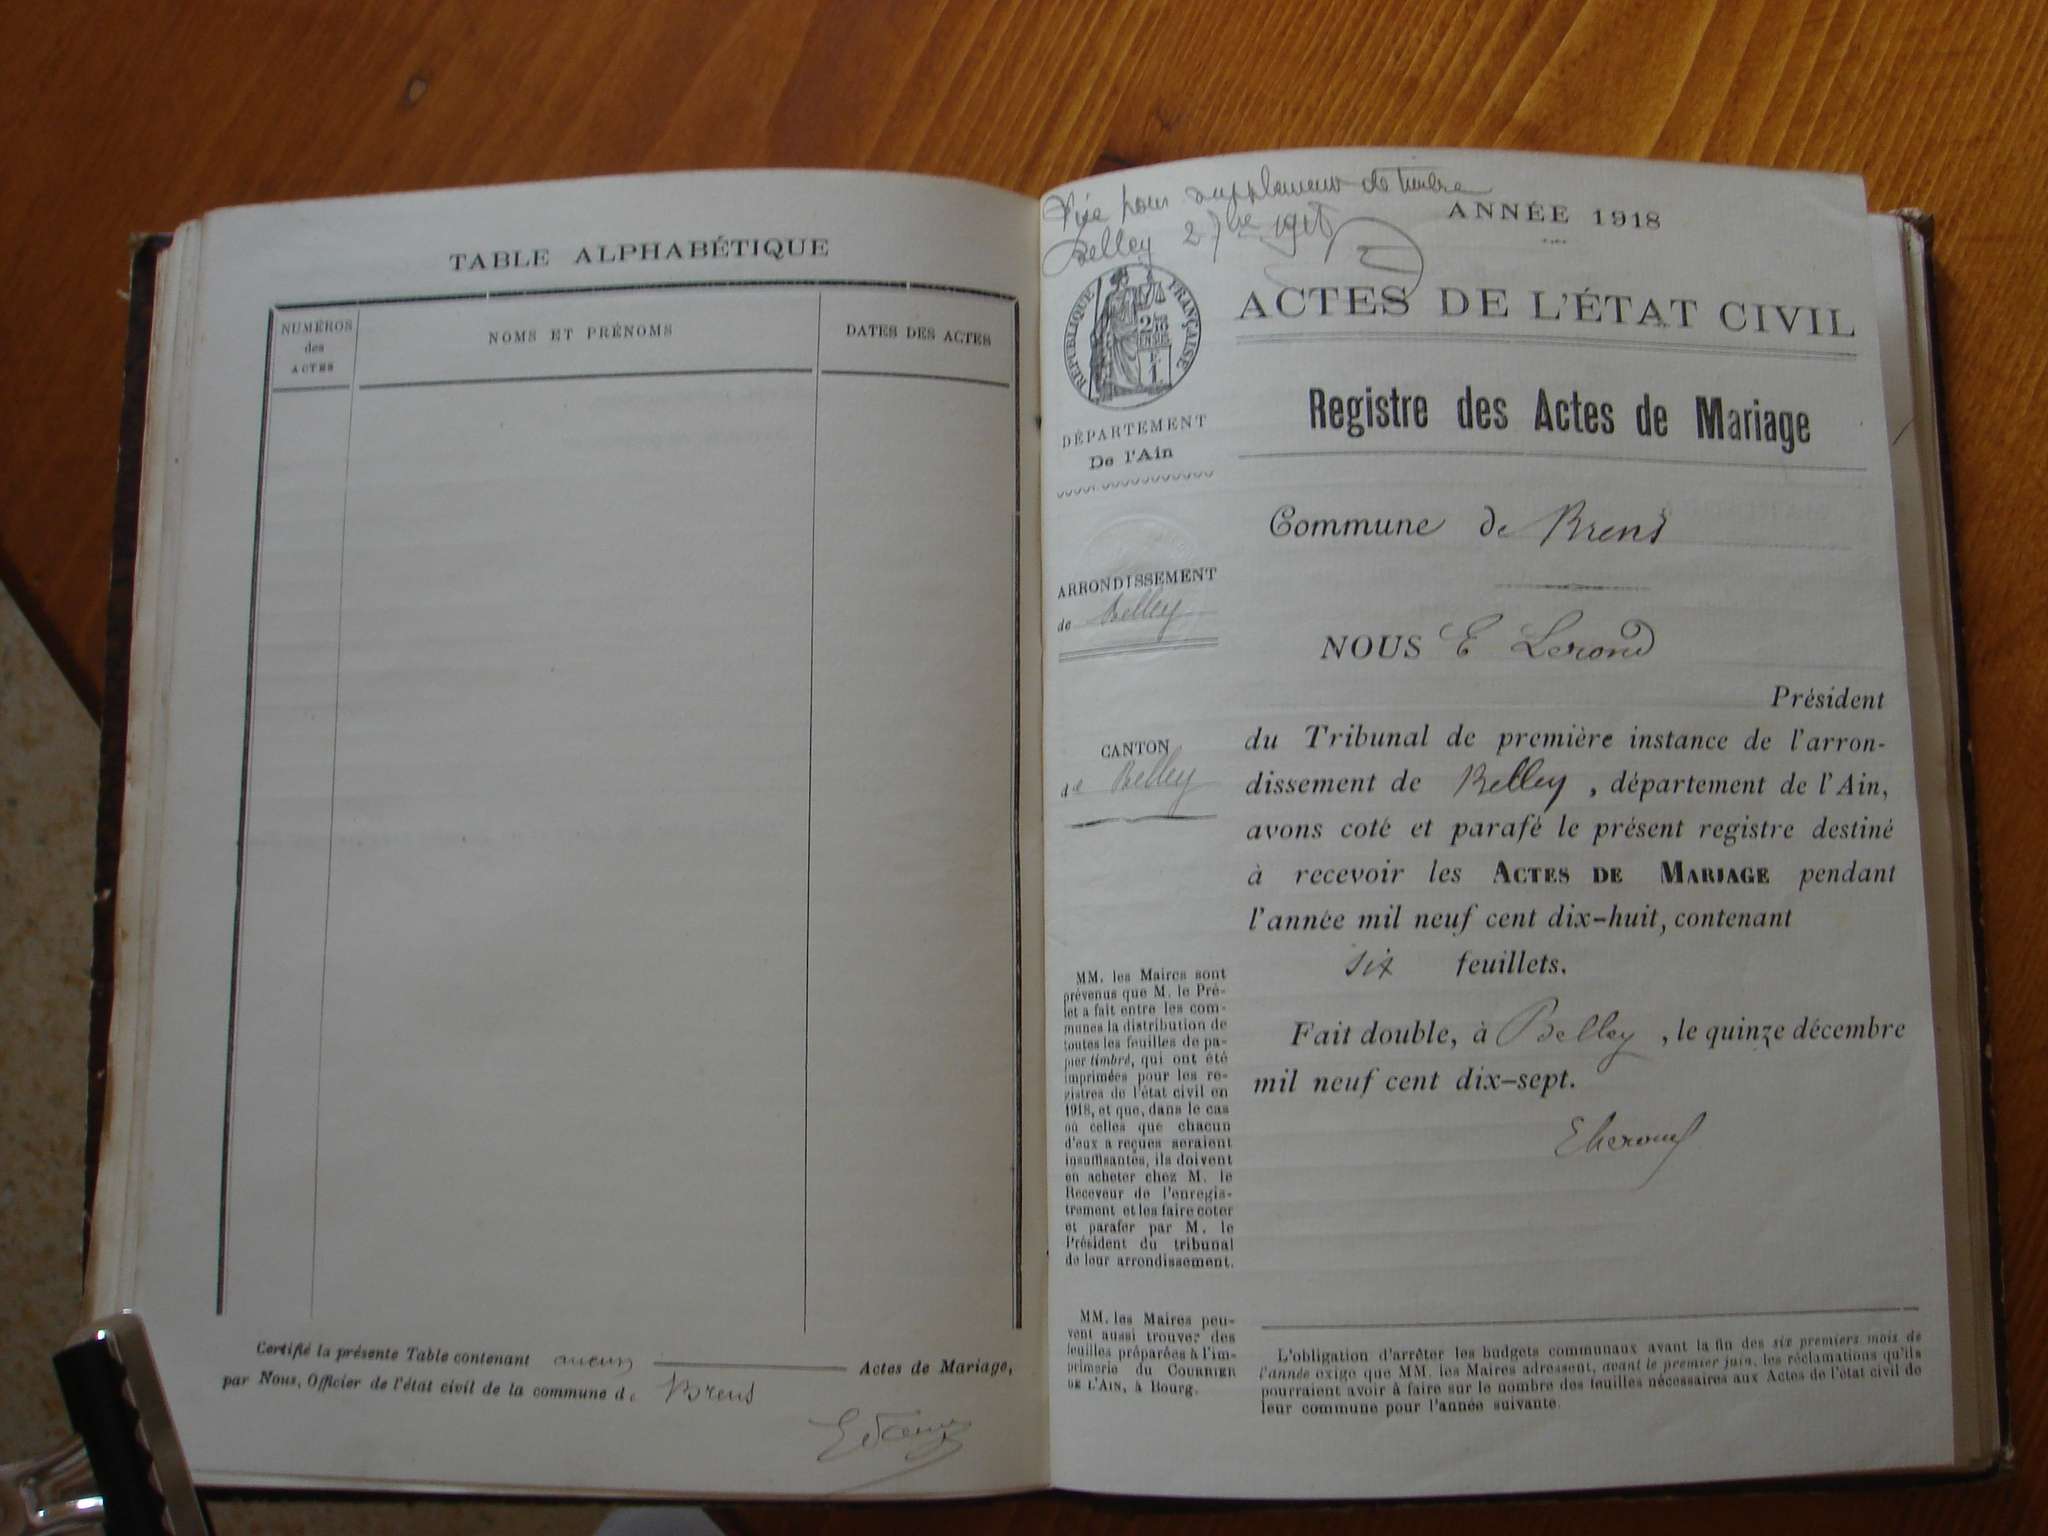 TABLE ALPHABÉTIQUE
NUMÉROS
des
ACTES
NOMS ET PRÉNOMS
DATES DES ACTES
Certifié la présente Table contenant aucun Actes de Mariage,
par Nous, Officier de l'état civil de la commune de Brens
Visé pour supplément de timbre
Belley 2 7bre 1918
ANNÉE 1918
RÉPUBLIQUE FRANÇAISE
ACTES DE L'ÉTAT CIVIL
Registre des Actes de Mariage
DÉPARTEMENT
De l'Ain
Commune de Brens
ARRONDISSEMENT
de Belley
NOUS E Lerond
Président
du Tribunal de première instance de l'arron-
dissement de Belley, département de l'Ain,
avons coté et parafé le présent registre destiné
à recevoir les ACTES DE MARIAGE pendant
l'année mil neuf cent dix-huit, contenant
six feuillets.
Fait double, à Belley, le quinze décembre
mil neuf cent dix-sept.
ELerond
CANTON
de Belley
MM. les Maires sont
prévenus que M. le Pré-
fet a fait entre les com-
munes la distribution de
toutes les feuilles de pa-
pier timbré, qui ont été
imprimées pour les re-
gistres de l'état civil en
1918, et que, dans le cas
où celles que chacun
d'eux a reçues seraient
insuffisantes, ils doivent
en acheter chez M. le
Receveur de l'enregis-
trement et les faire coter
et parafer par M. le
Président du tribunal
de leur arrondissement.
MM. les Maires peu-
vent aussi trouver des
feuilles préparées à l'im-
primerie du COURRIER
DE L'AIN, à Bourg.
L'obligation d'arrêter les budgets communaux avant la fin des six premiers mois de
l'année exige que MM. les Maires adressent, avant le premier juin, les réclamations qu'ils
pourraient avoir à faire sur le nombre des feuilles nécessaires aux Actes de l'état civil de
leur commune pour l'année suivante.